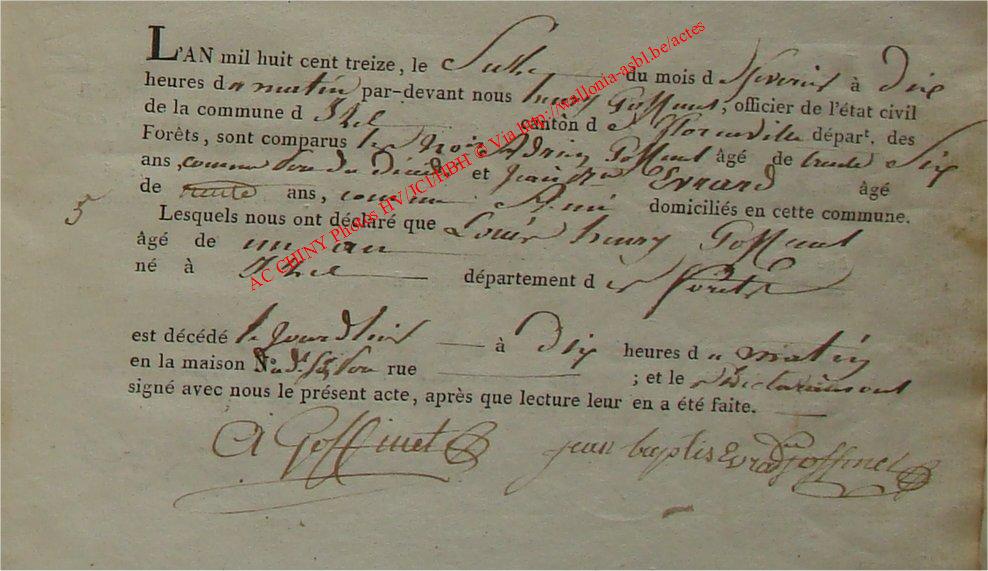 L'AN mil huit cent treize, le du mois d fevrier à dix
heures du matin par-devant nous henry Goffinet, officier de l'état civil
de la commune d Izel canton d e florenville départ. des
Forêts, sont comparus les Adrien Goffinet âgé de trente Six
ans, du et jean Evrard âgé
de ans, domiciliés en cette commune.
5
Lesquels nous ont déclaré que Louis henry Goffinet
âgé de un an
né à Izel département d es forêts
est décédé le jour d'hier à Dix heures d u matin
en la maison N.o rue ; et le s Déclarants ont
signé avec nous le présent acte, après que lecture leur en a été faite.
A Goffinet jean baptis Evrard Goffinet
AC CHINY Photos HV/JCI/RBH © Via http://wallonia-asbl.be/actes